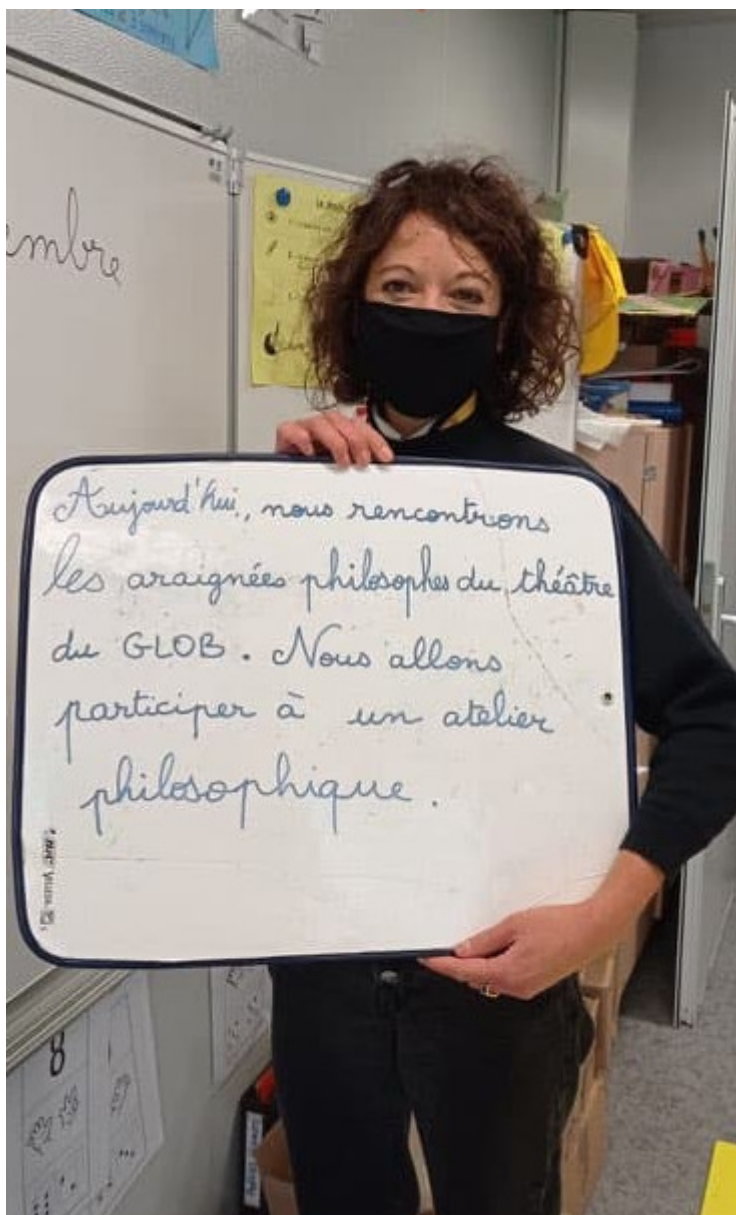 embre
Aujourd'hui, nous rencontrons
les araignées philosophes du théâtre
du GLOB. Nous allons
participer à un atelier
philosophique.
8